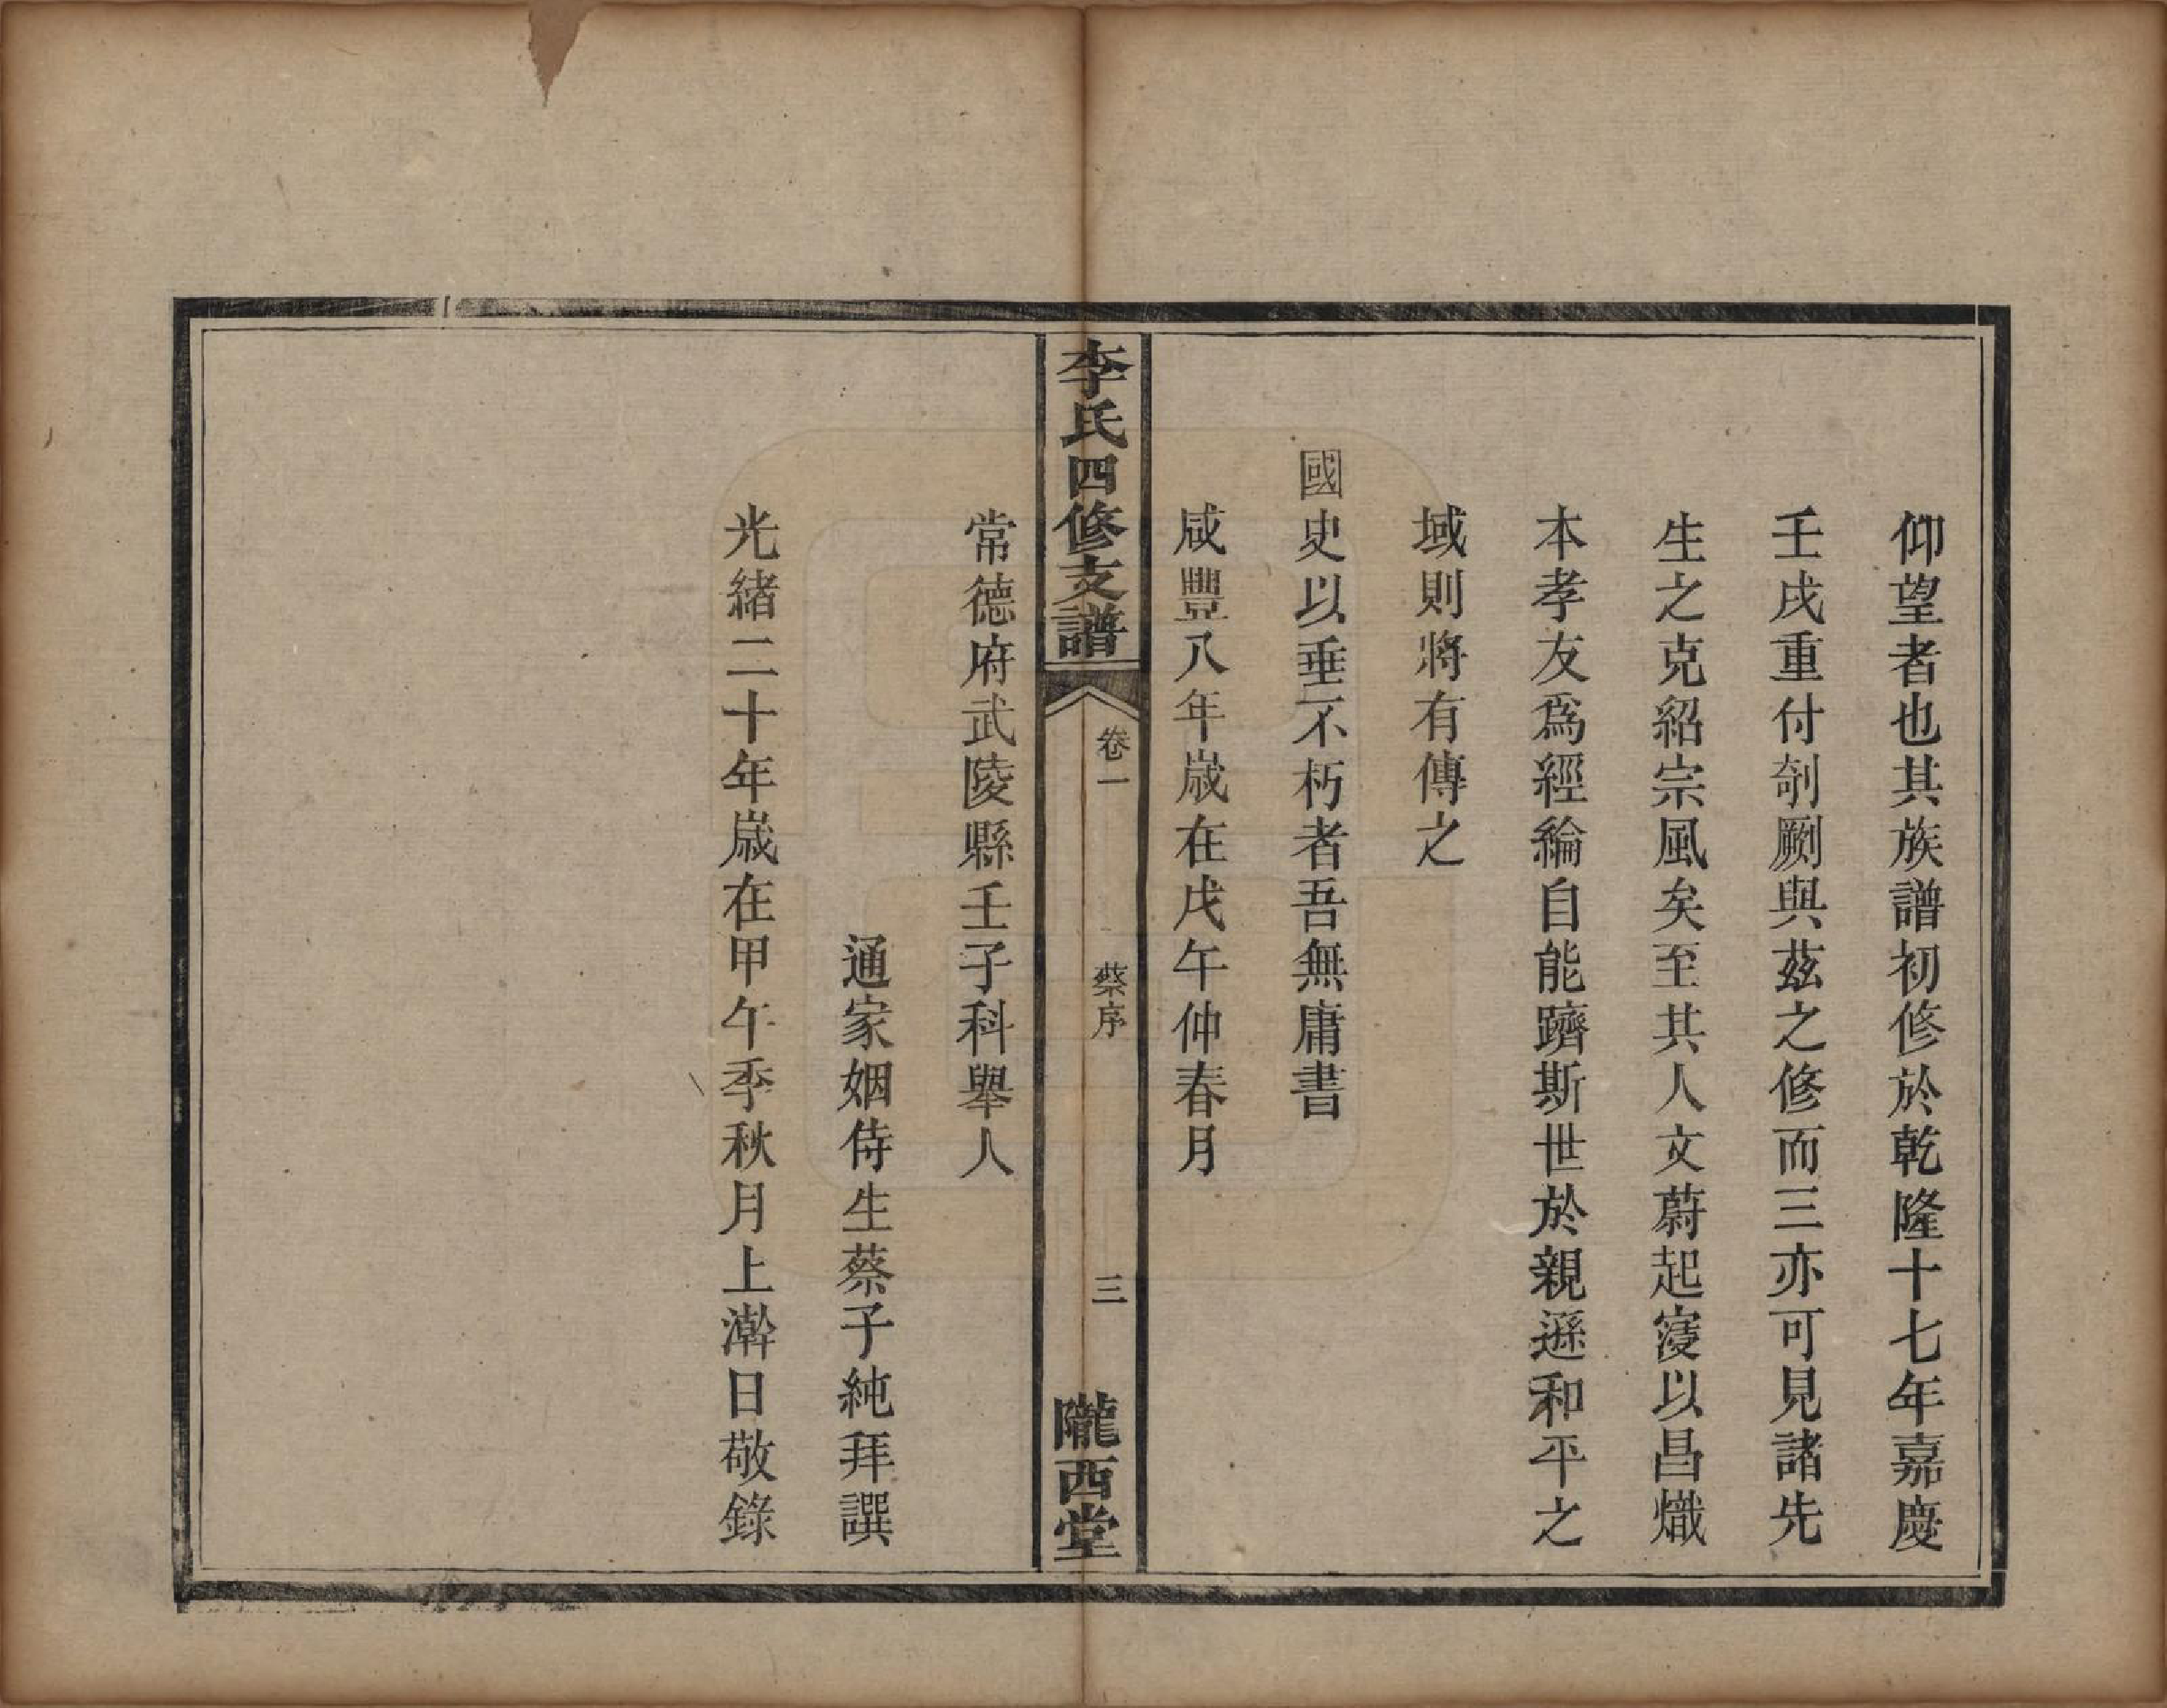 仰望者也其族譜初修於乾隆十七年嘉慶
壬戌重付剞劂與茲之修而三亦可見諸先
生之克紹宗風矣至其人文蔚起寖以昌熾
本孝友爲經綸自能躋斯世於親遜和平之
域則將有傳之
國史以垂不朽者吾無庸書
咸豐八年歲在戊午仲春月
李氏四修支譜
卷一
蔡序
三
隴西堂
常德府武陵縣壬子科舉人
通家姻侍生蔡子純拜譔
光緒二十年歲在甲午季秋月上澣日敬錄